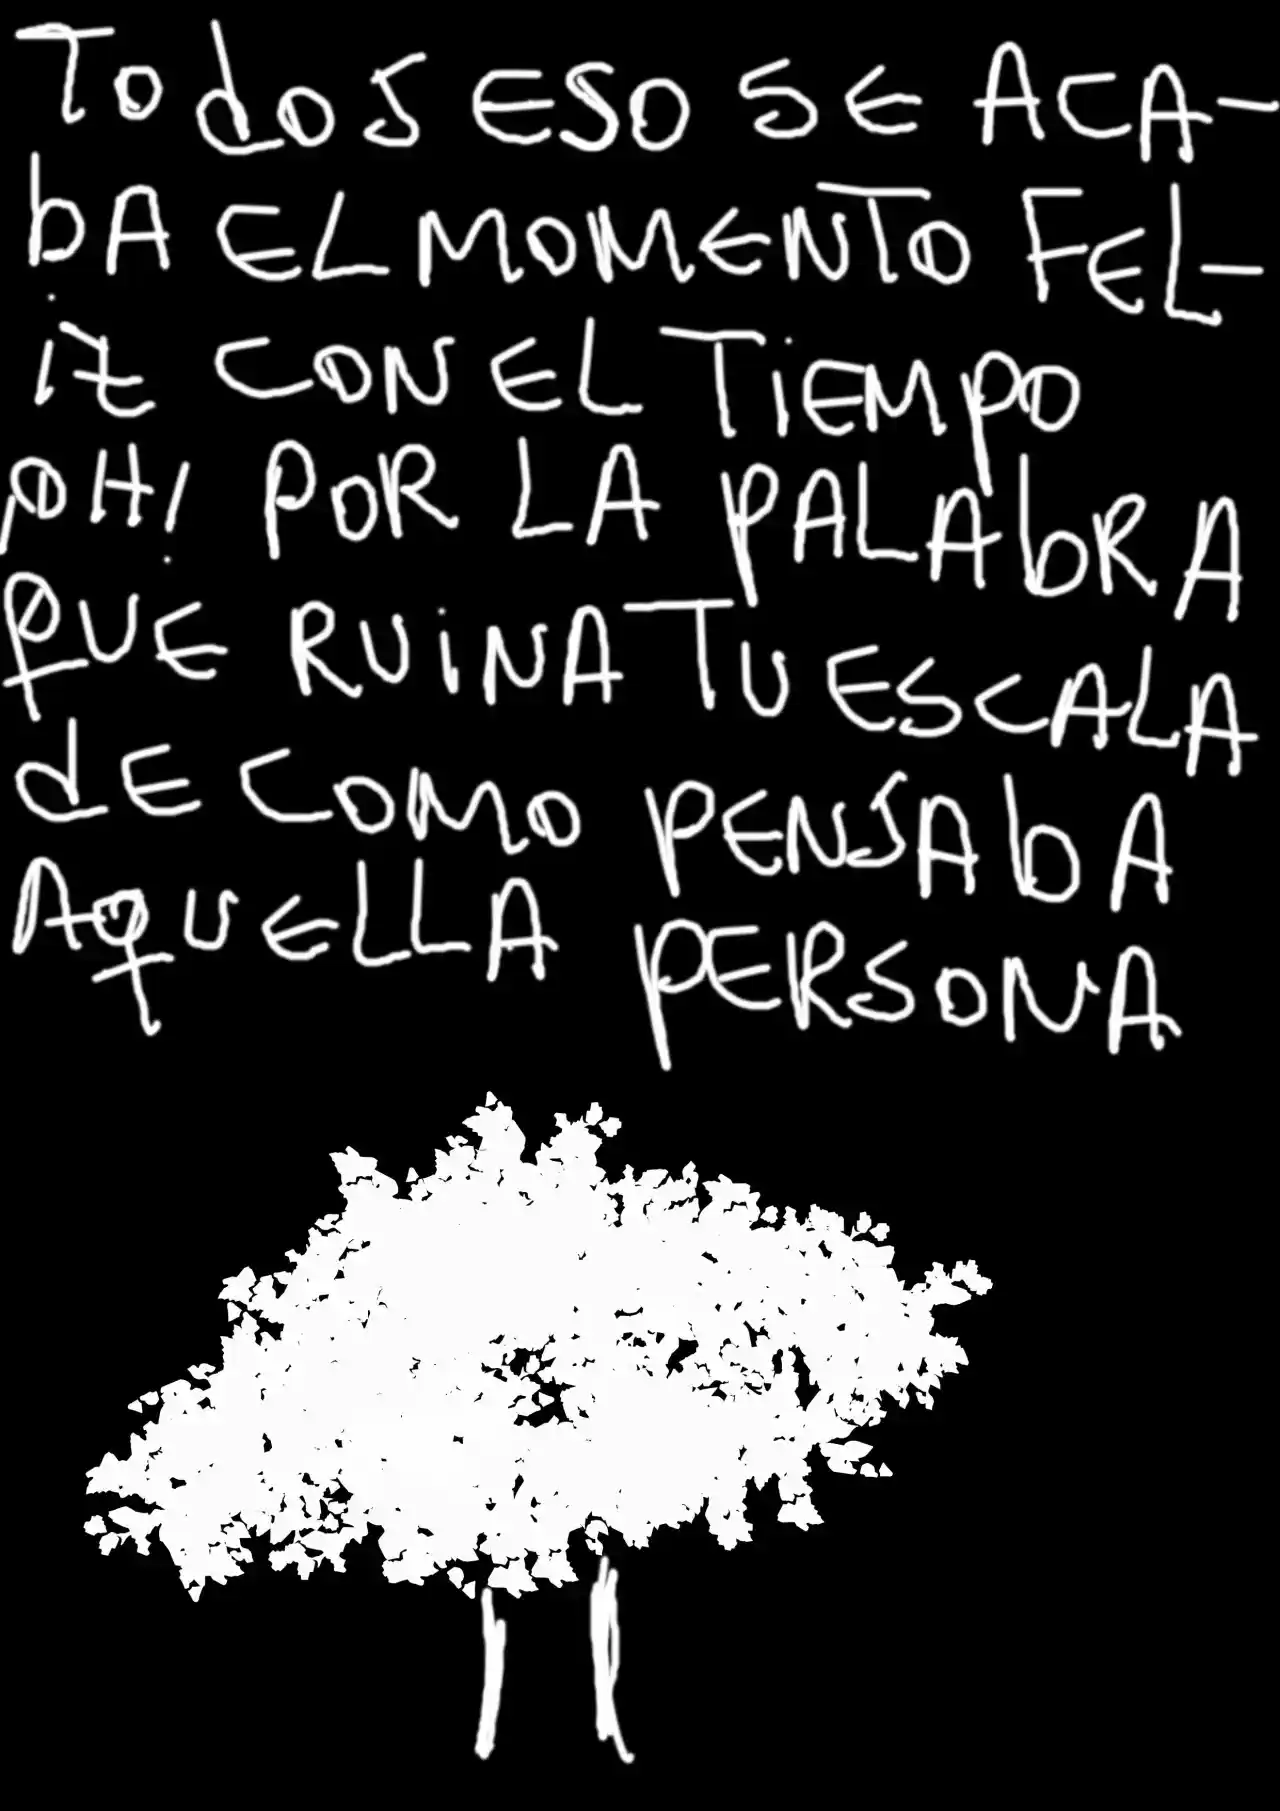 TodoS ESO SE ACA-
bA EL MOMENTO FEL-
iz CON EL TiEMPO
OH! POR LA PALAbRA
QUE RUiNA TU ESCALA
dE COMO PENSAbA
AQUELLA PERSONA